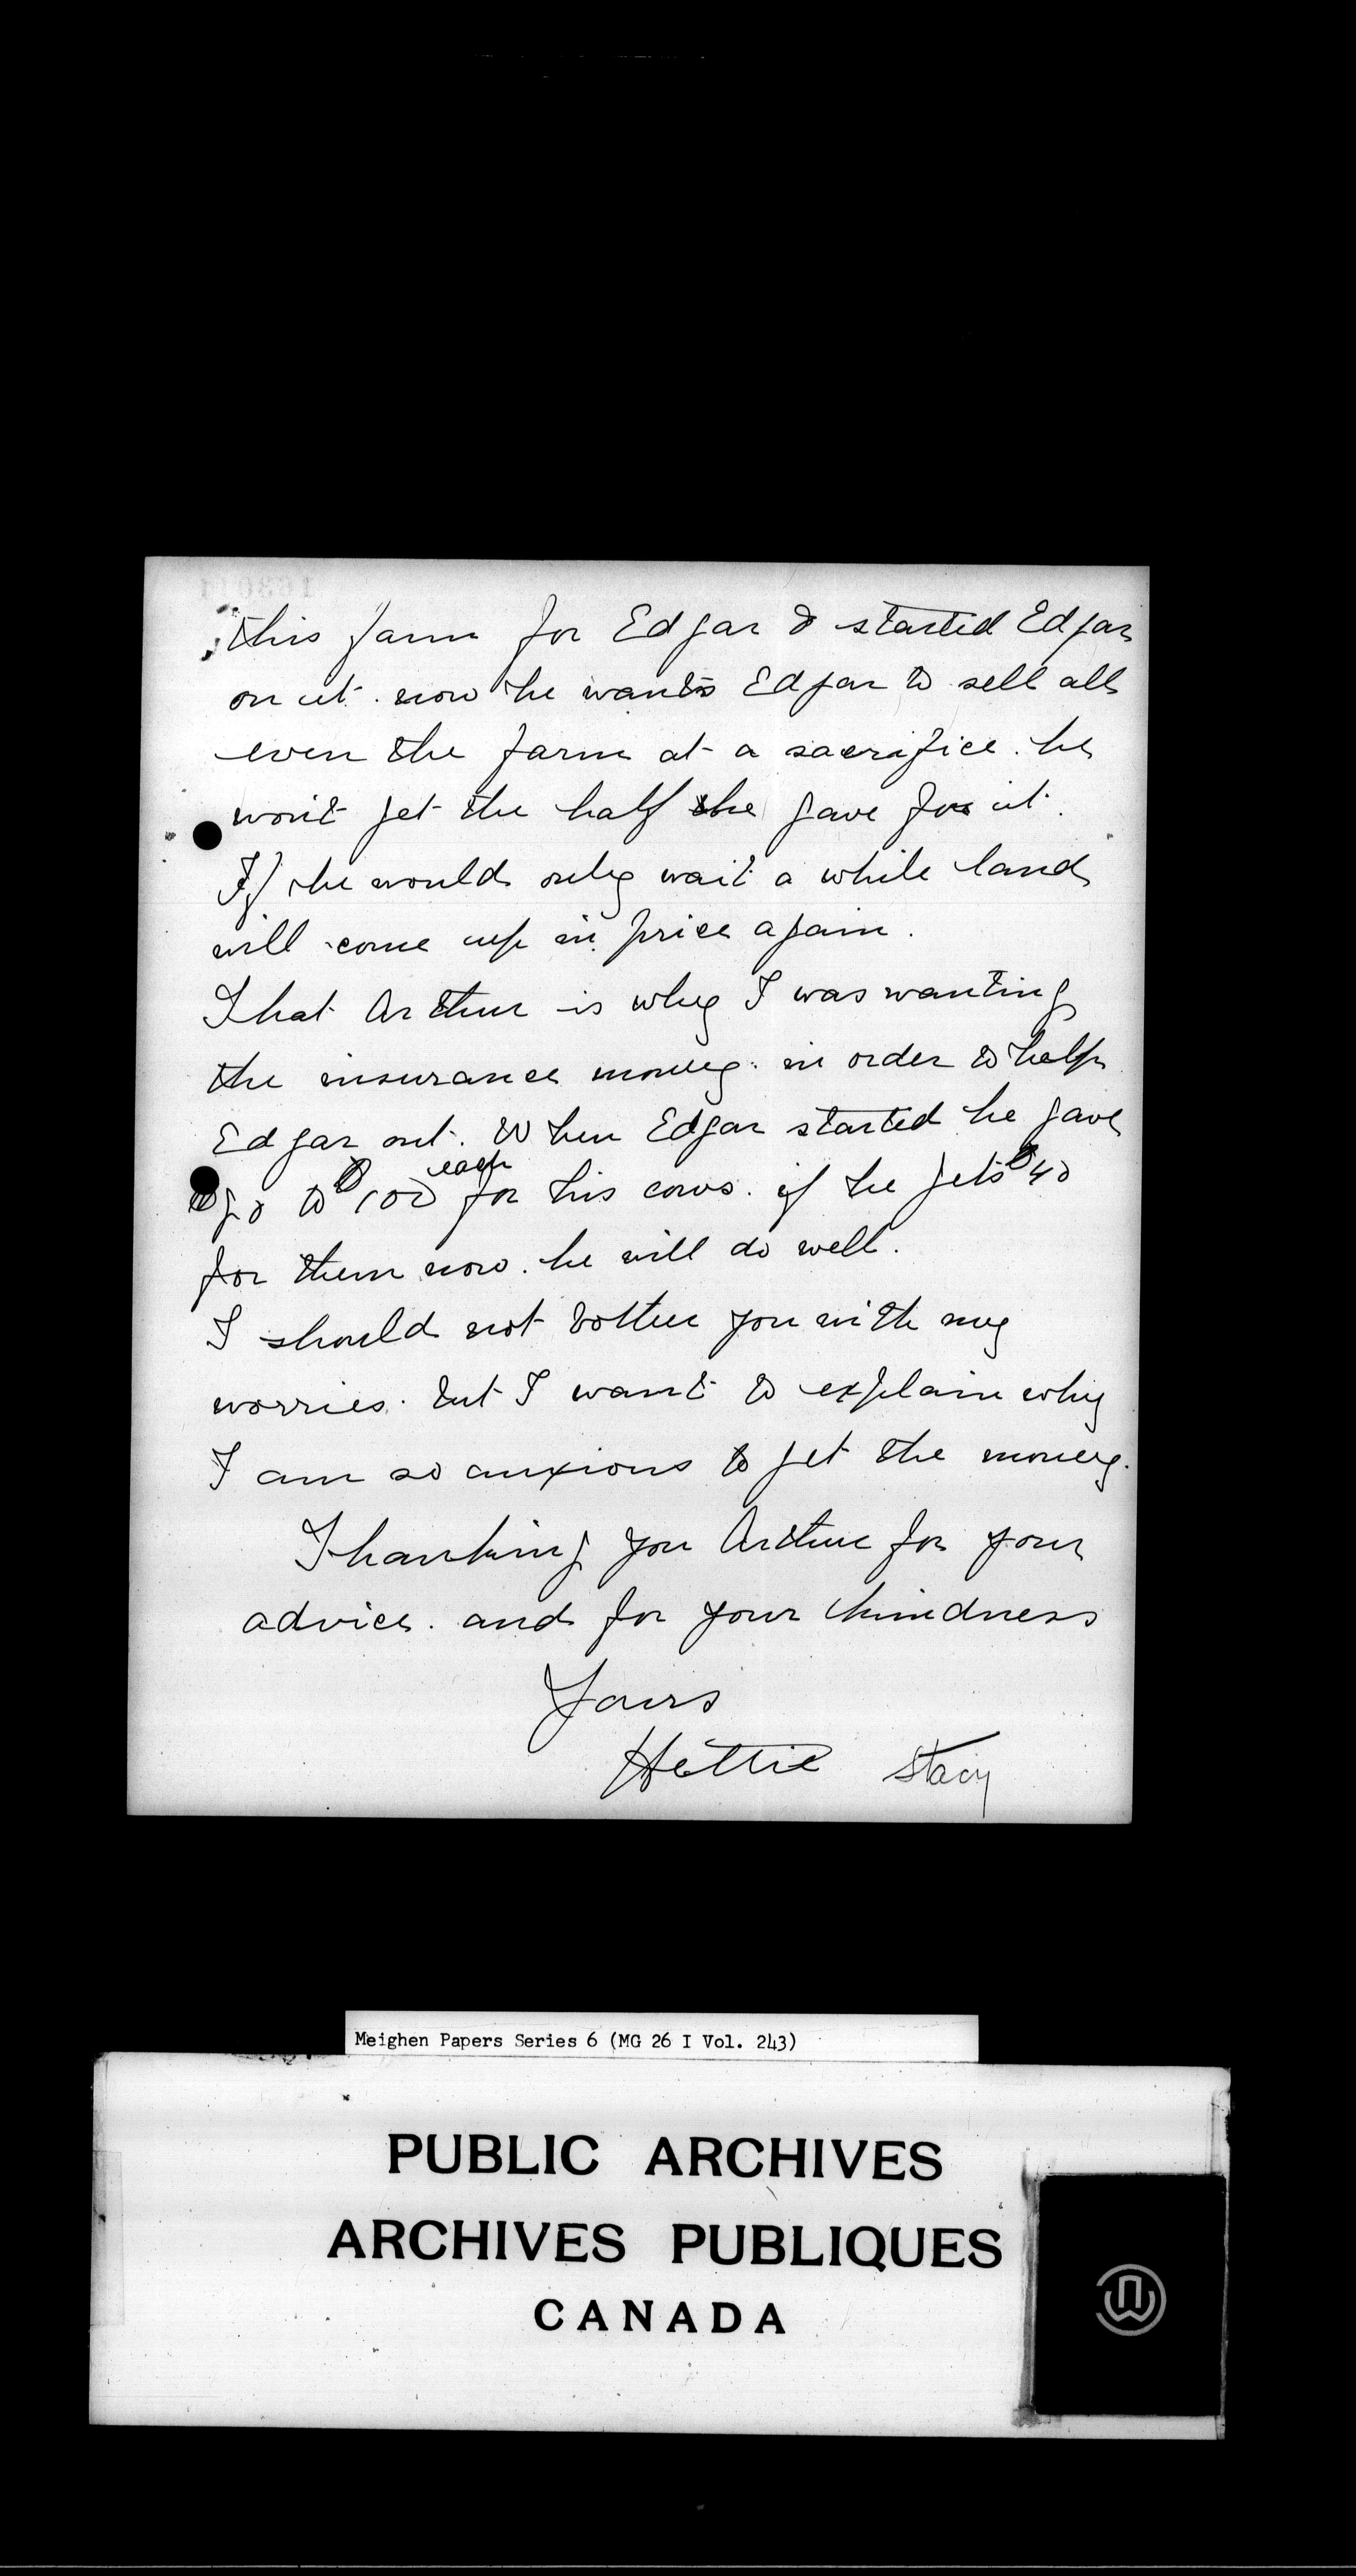 this farm for Edgar & started Edgar
on it. now he wants Edgar to sell all
even the farm at a sacrifice. he
won't get the half he gave for it.
If he would only wait a while land
will come up in price again.
That Arthur is why I was wanting
the insurance money. in order to help
Edgar out. When Edgar started he gave
to $100 each for his cows. if he gets $40
for them now. he will do well.
I should not bother you with my
worries. but I want to explain why
I am so anxious to get the money.
Thanking you Arthur for your
advice. and for your kindness
Yours
Hettie Stacy
Meighen Papers Series 6 (MG 26 I Vol. 243)
PUBLIC ARCHIVES
ARCHIVES PUBLIQUES
CANADA